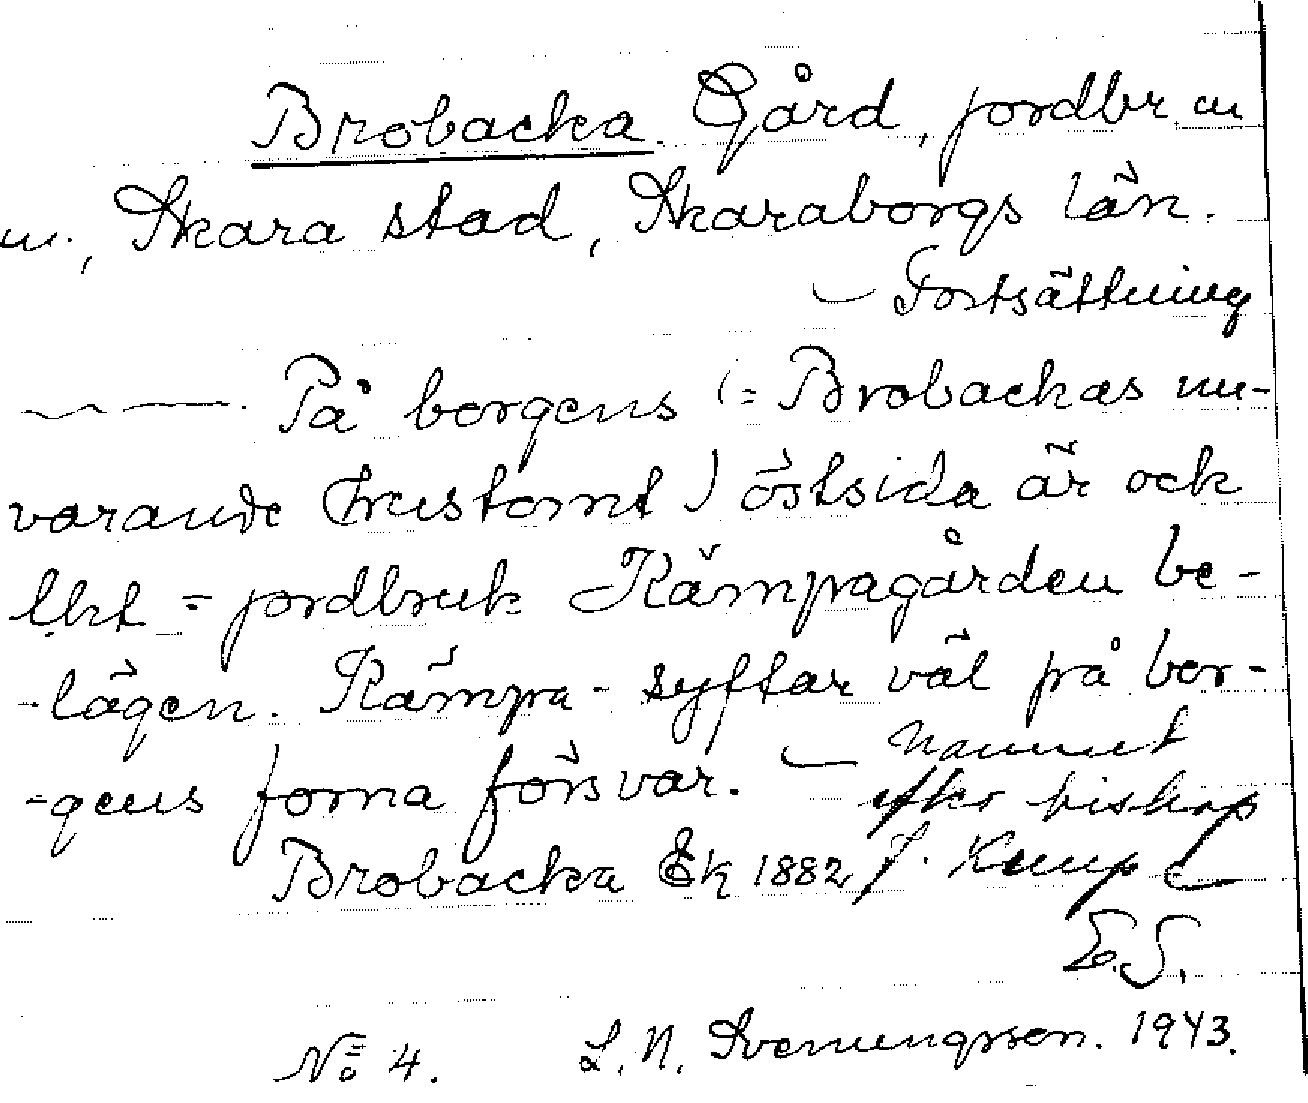 Brobacka. Gård, jordbr m
m., Skara stad, Skaraborgs län.
— Fortsättning
På borgens (= Brobackas nu-
varande hustomt) östsida är ock
= jordbruk Kämpagården be-
-lägen. Kämpa- syftar väl på bor-
-gens forna försvar. — Namnet
efter biskop
Brobacka Ek 1882 J. Kemp
E.S.
No 4. L. N. Svenungsson. 1943.